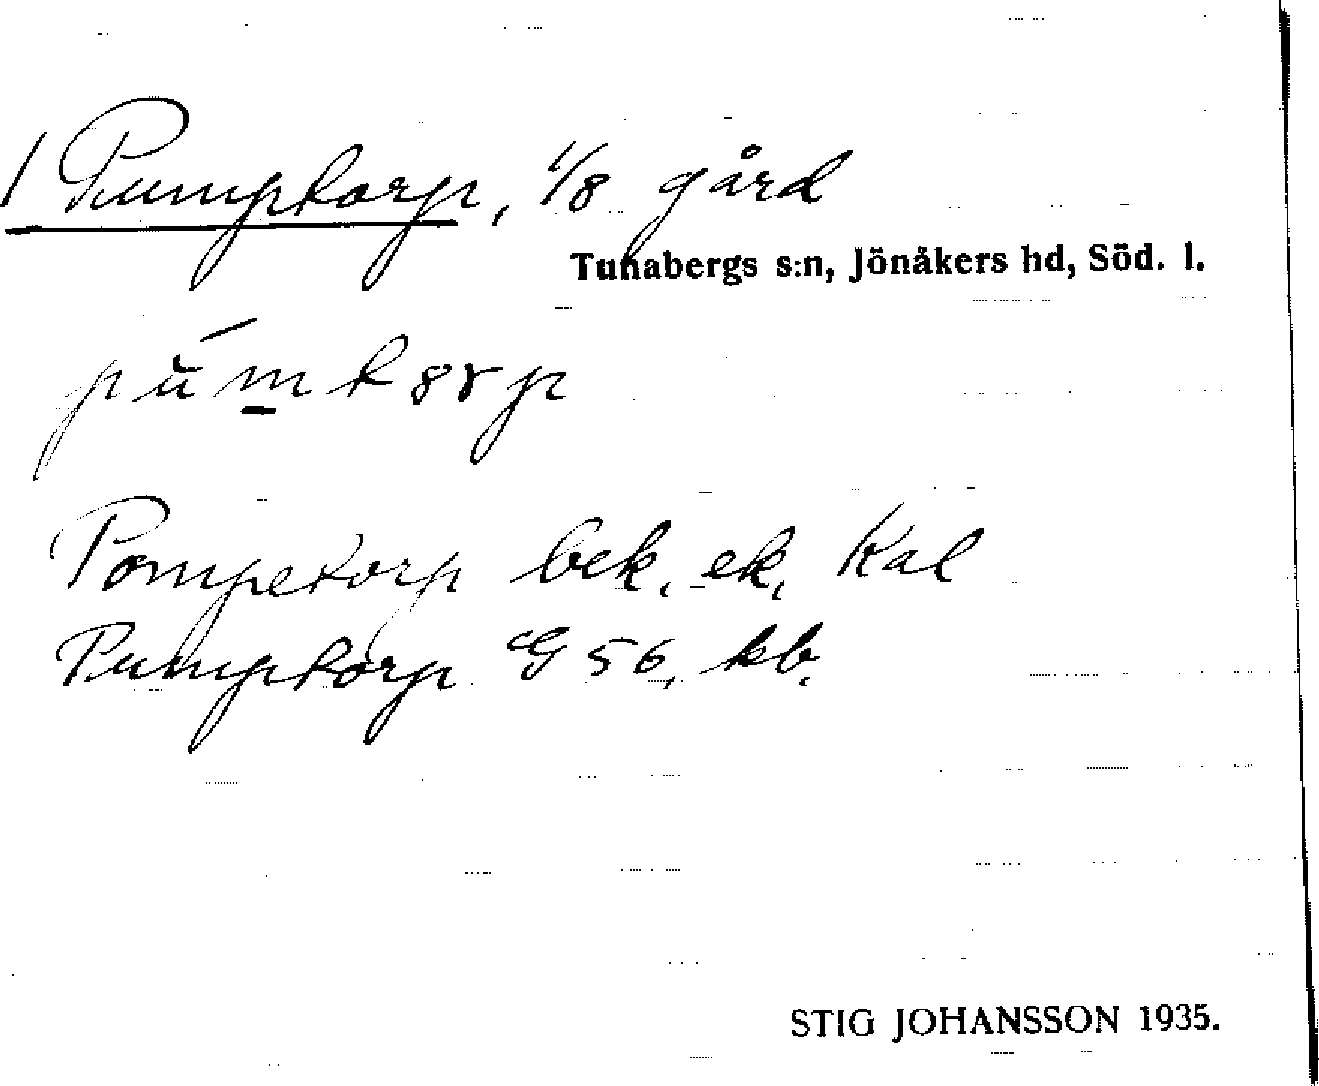 / Pumptorp, 1/8 gård
Tunabergs s:n, Jönåkers hd, Söd. l.
Pompetorp bek. ek. Kal
Pumptorp G 56, kb.
STIG JOHANSSON 1935.